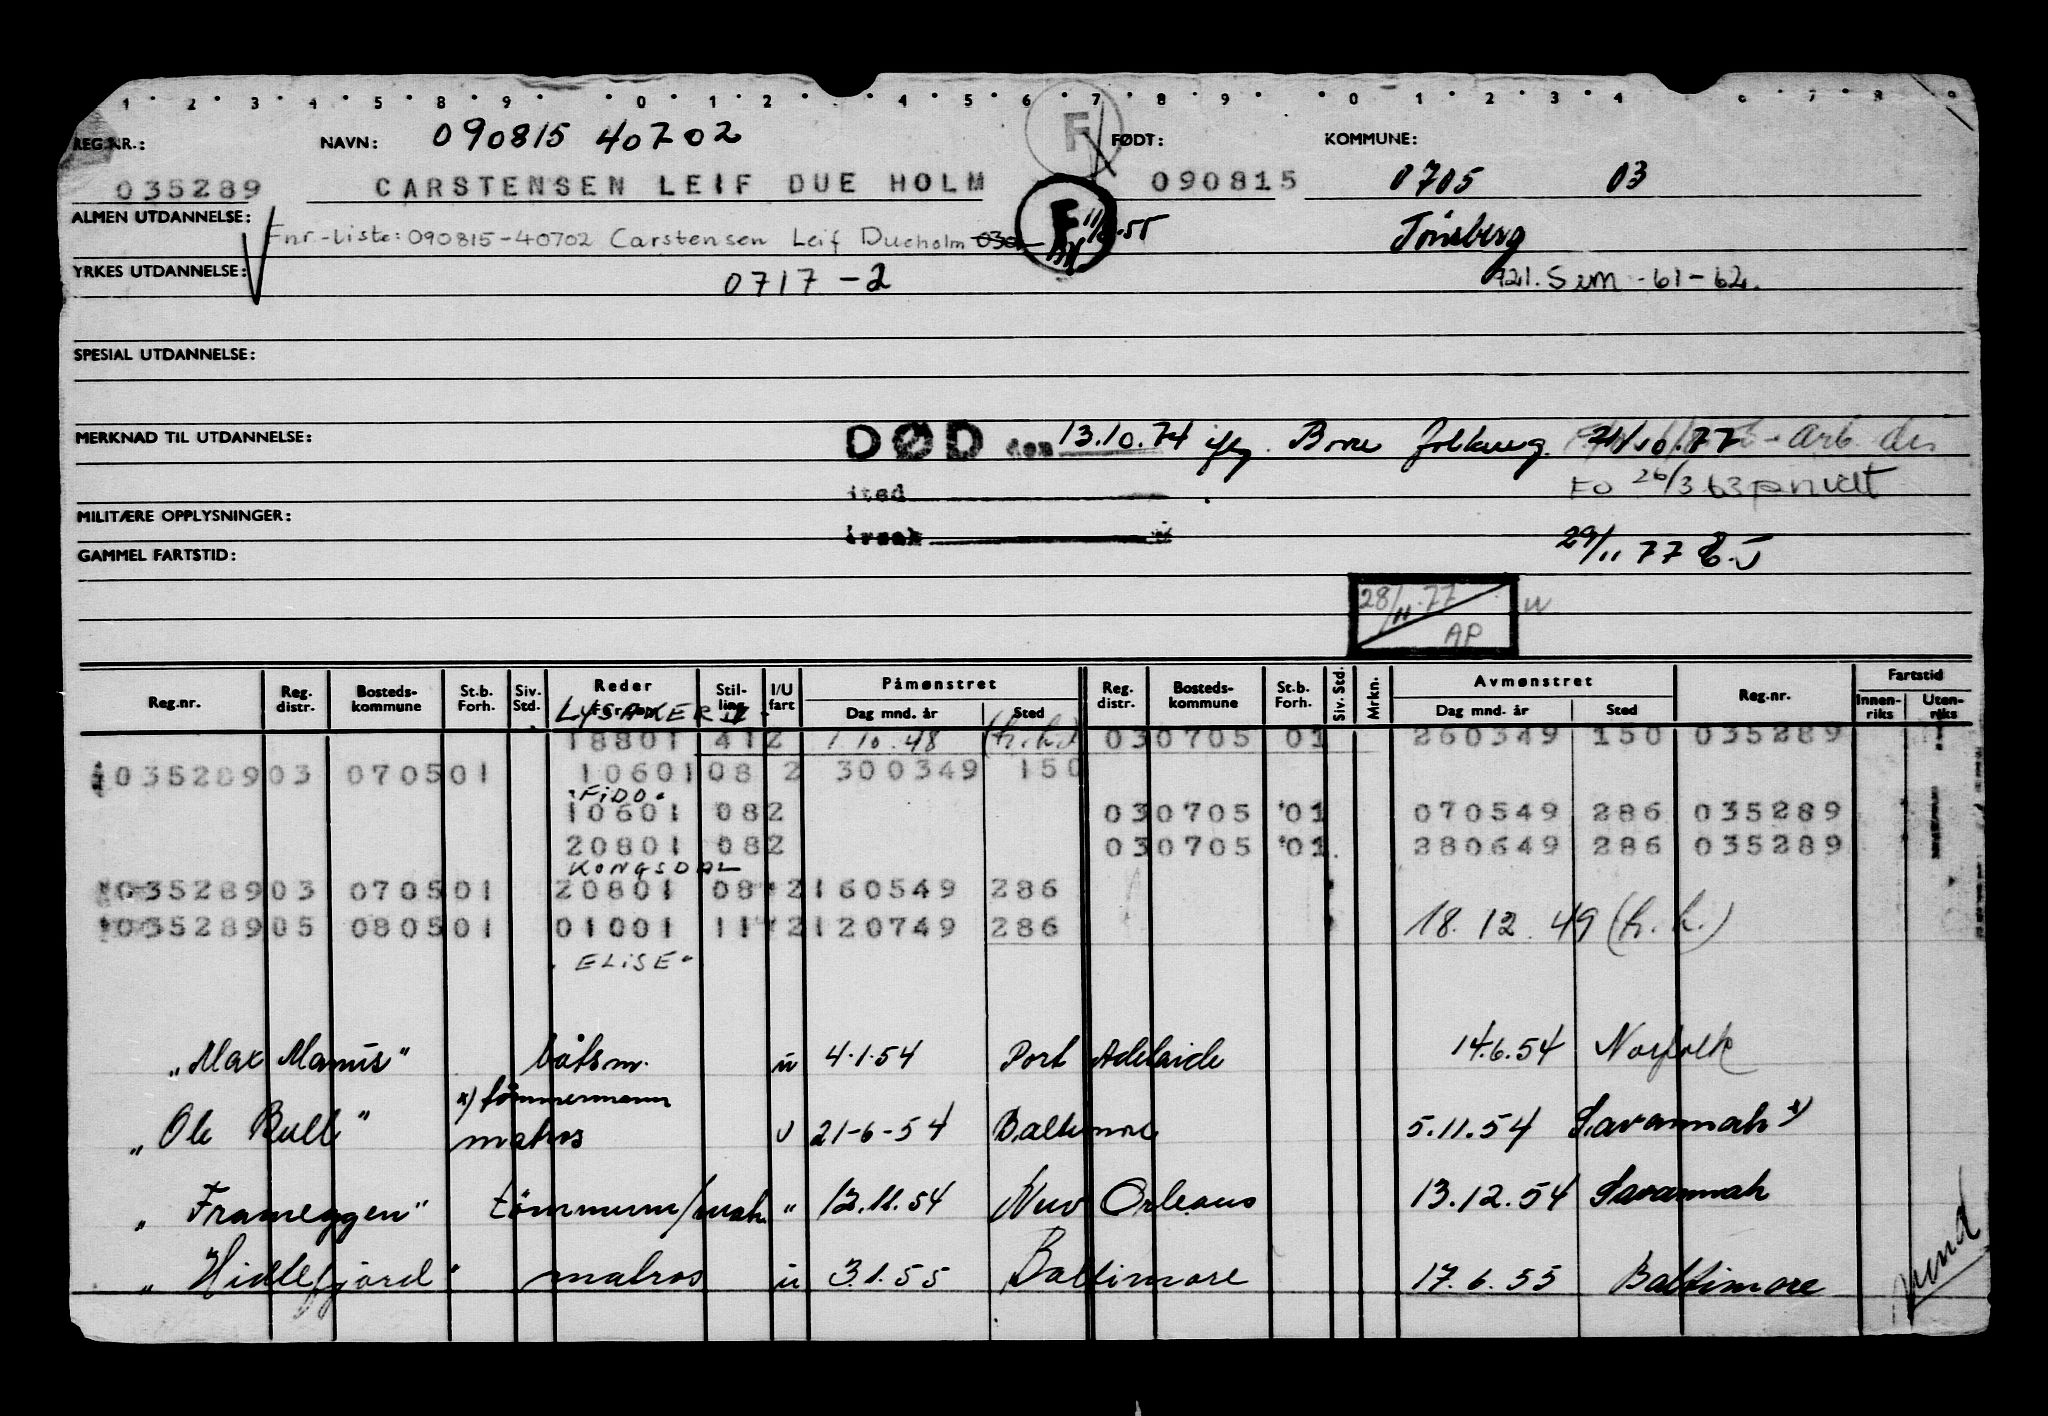 1 2 3 4 5 8 9 0 1 2 4 5 6 7 8 9 0 1 2 3 4 6 7 8 9
REG.NR.: NAVN: 090815 40702 F FØDT: KOMMUNE:
035289 CARSTENSEN LEIF DUE HOLM 090815 0705 03
ALMEN UTDANNELSE: F Tönsberg
Fnr-liste: 090815-40702 Carstensen Leif Dueholm
YRKES UTDANNELSE: 0717 -2 Sem -61-62.
SPESIAL UTDANNELSE:
MERKNAD TIL UTDANNELSE: DØD den 13.10.74 ifg. Borre folkereg. 21/10.77
sted 26/3 63 privat
MILITÆRE OPPLYSNINGER:
årsak
29/11 77
GAMMEL FARTSTID:
28/11.77
AP
Reg.nr. Reg. distr. Bosteds- kommune St.b. Forh. Siv. Std. Reder Stil- ling I/U fart Påmønstret Dag mnd. år Sted Reg. distr. Bosteds- kommune St.b. Forh. Siv. Std. Mrkn. Avmønstret Dag mnd. år Sted Reg.nr. Fartstid Innen- riks Uten- riks
LYSAKER
18801 41 2 1.10.48 (h.k.) 03 0705 01 260349 150 035289
035289 03 0705 01 10601 08 2 300349 150
"FIDO"
10601 08 2 03 0705 01 070549 286 035289
20801 08 2 03 0705 01 280649 286 035289
KONGSDAL
035289 03 0705 01 20801 08 2 160549 286
035289 05 0805 01 01001 11 2 120749 286 18.12.49 (h.k.)
"ELISE"
"Max Manus" båtsm. u 4.1.54 Port Adelaide 14.6.54 Norfolk
x) tömmermann
"Ole Bull" matros u 21-6-54 Baltimore 5.11.54 Savannah x)
"Frameggen" tömmerm/matr. " 12.11.54 New Orleans 13.12.54 Savannah
"Hidlefjord" matros u 3.1.55 Baltimore 17.6.55 Baltimore